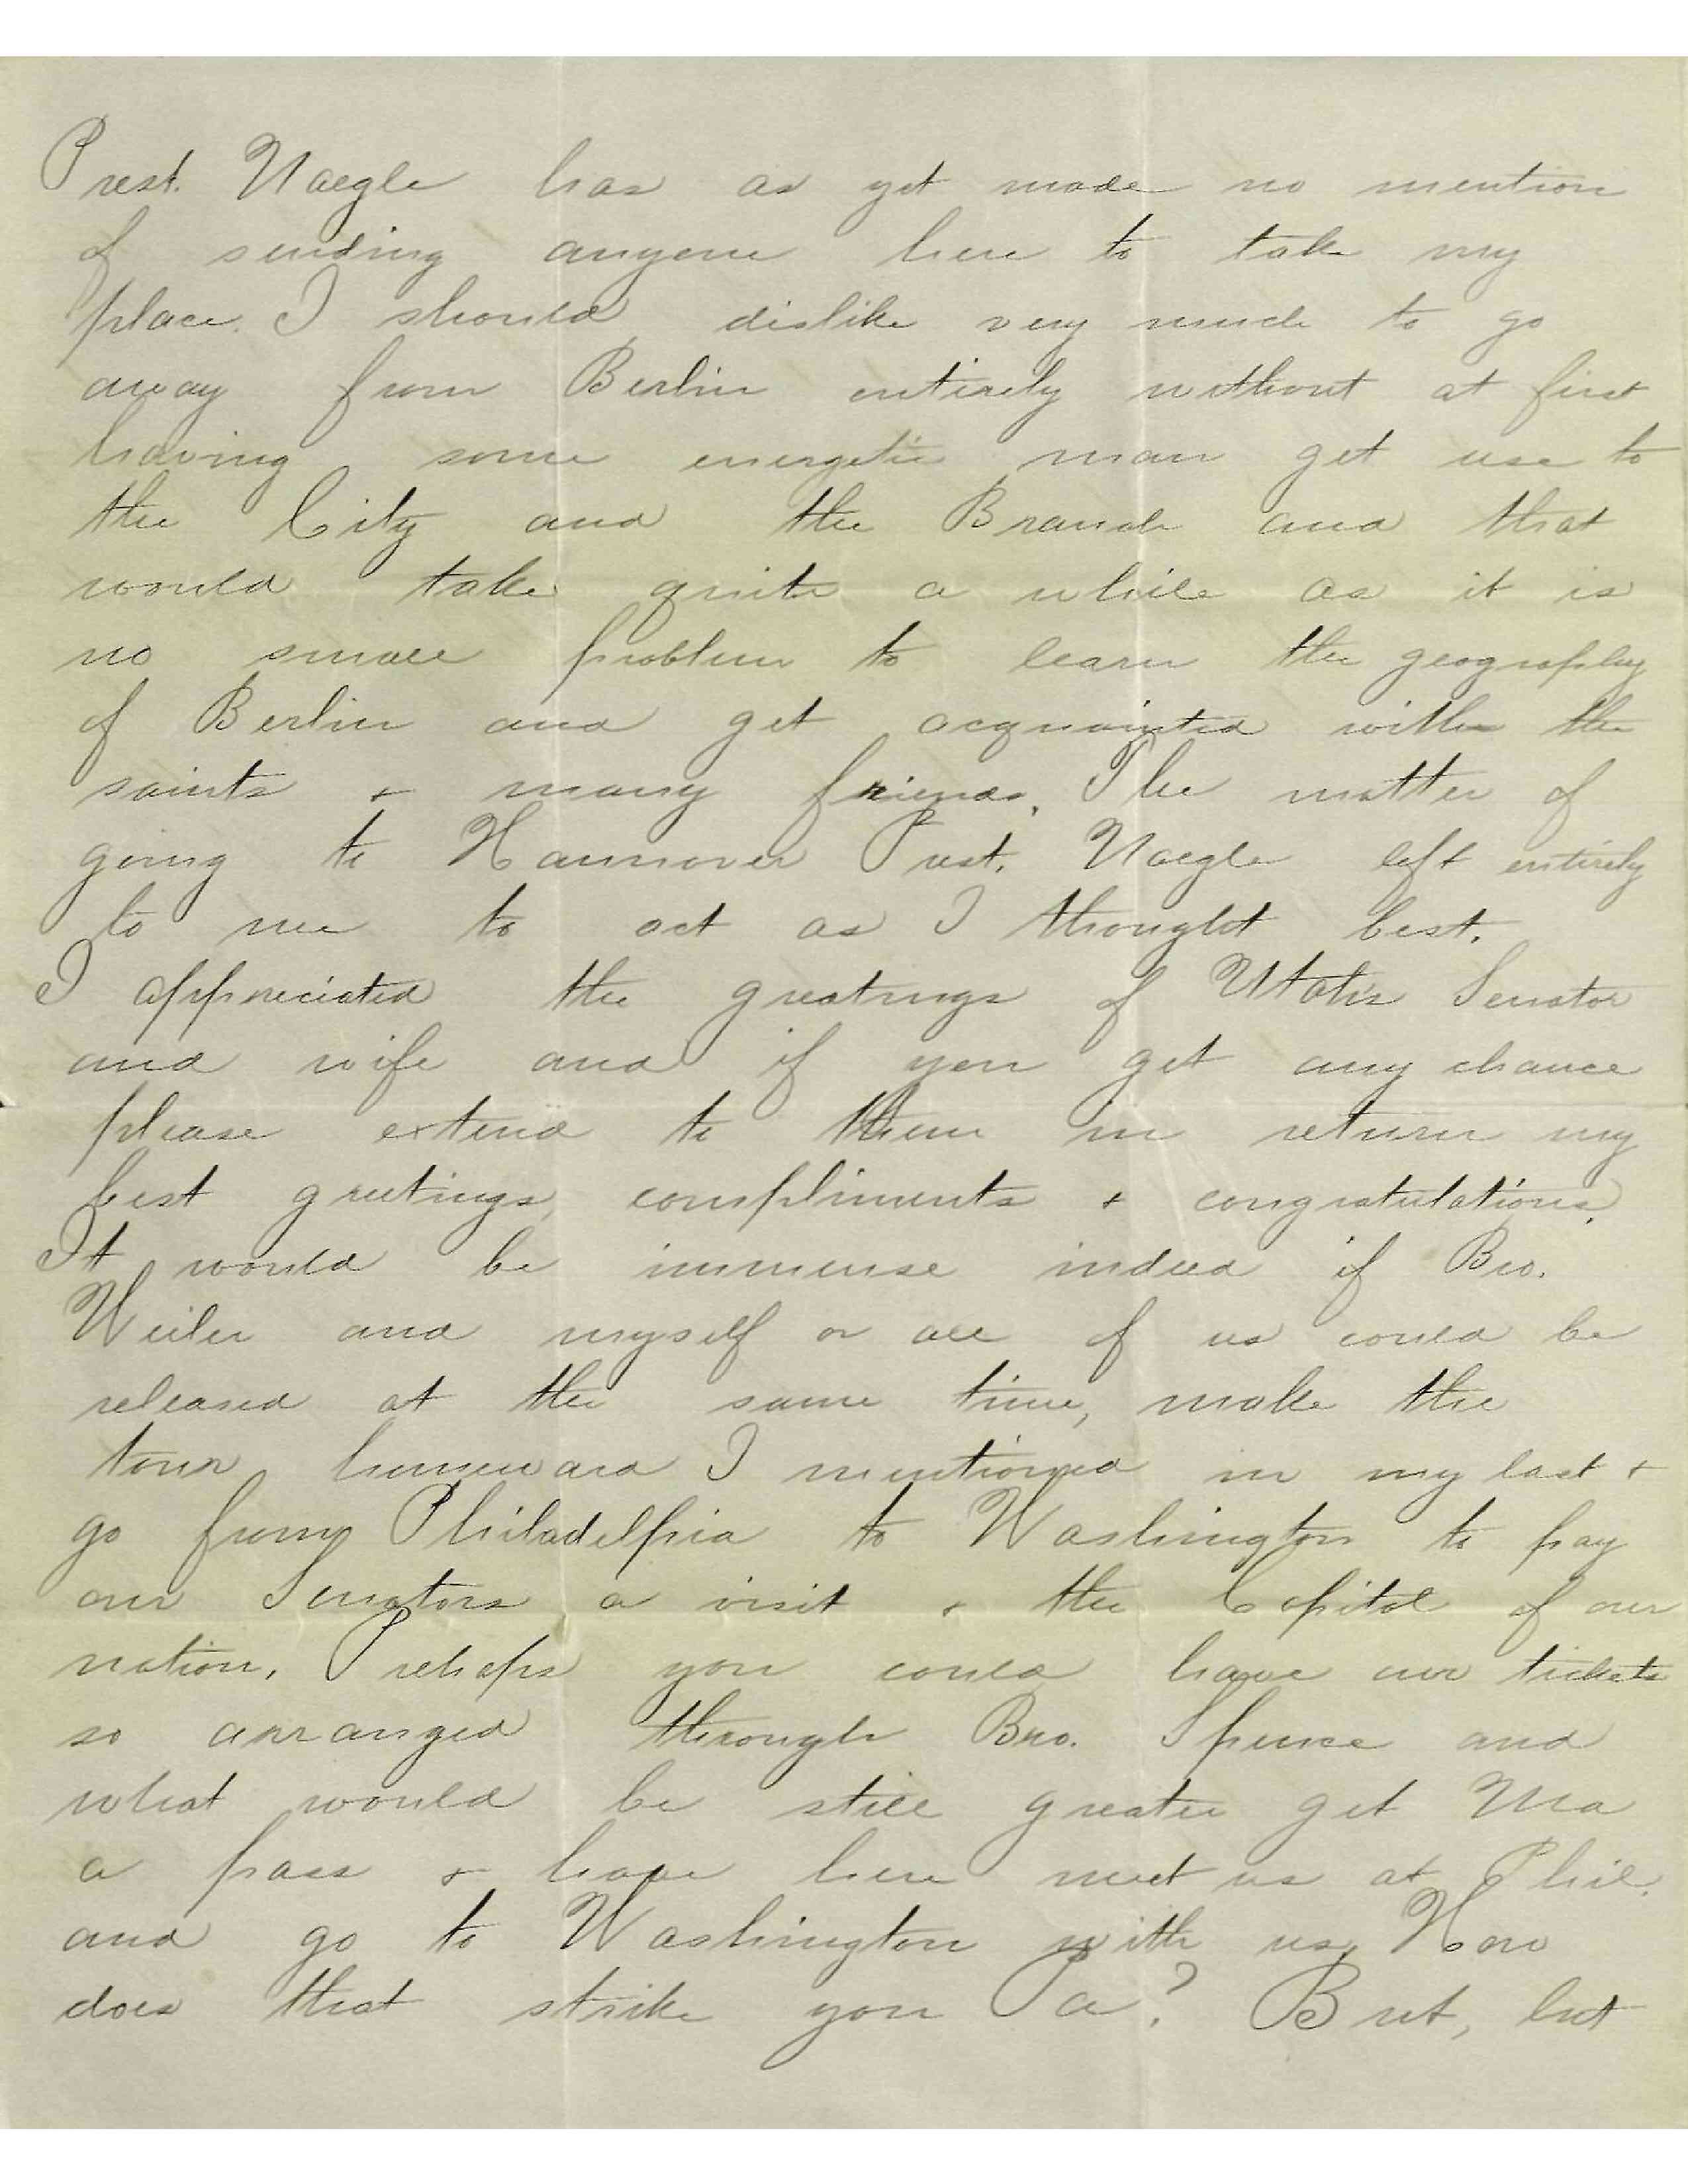 Prest. Naegle has as yet made no mention
of sending anyone here to take my
place. I should dislike very much to go
away from Berlin entirely without at first
having some energetic man get use to
the City and the Branch and that
would take quite a while as it is
no small problem to learn the geography
of Berlin and get acquainted with the
saints + many friends. The matter of
going to Hannover Prest. Naegle left entirely
to me to act as I thought best.
I appreciated the greatings of Utahs Senator
and wife and if you get any chance
please extend to them in return my
best greetings, compliments + congratulations.
It would be immense indeed if Bro.
Weiler and myself or all of us could be
released at the same time, make the
tour homeward I mentioned in my last +
go from Philadelphia to Washington to pay
our Senators a visit + the Capitol of our
nation. Prehaps you could have our tickets
so arranged through Bro. Spence and
what would be still greater get Ma
a pass + have her meet us at Phil.
and go to Washington with us, How
does that strike you Pa? But, but